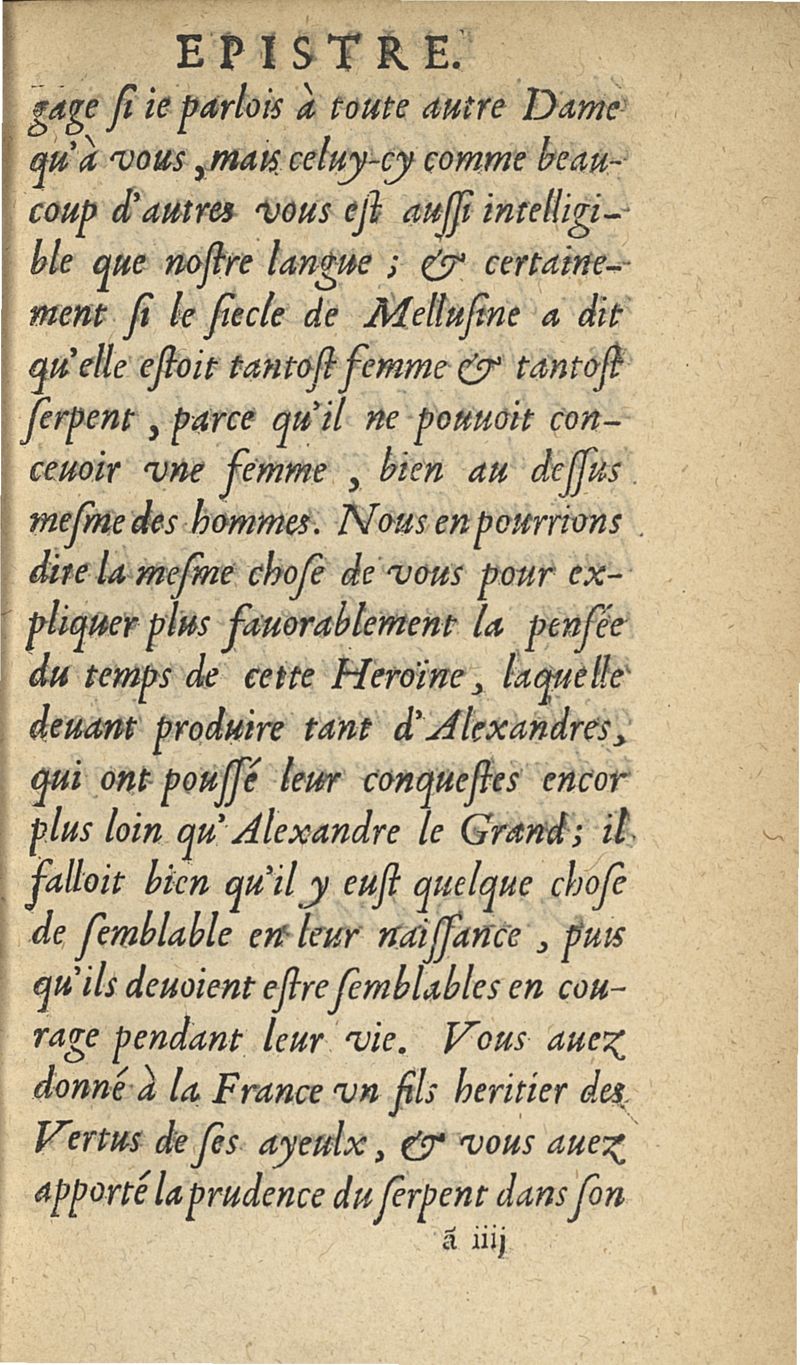 EPISTRE.
gage ſi ie parlois à toute autre Dame
qu'à vous, mais celuy-cy comme beau-
coup d'autres vous eſt auſſi intelligi-
ble que noſtre langue ; & certaine-
ment ſi le ſiecle de Melluſine a dit
qu'elle eſtoit tantoſt femme & tantoſt
ſerpent, parce qu'il ne pouuoit con-
ceuoir vne femme, bien au deſſus
meſme des hommes. Nous en pourrions
dire la meſme choſe de vous pour ex-
pliquer plus fauorablement la penſée
du temps de cette Heroïne, laquelle
deuant produire tant d'Alexandres,
qui ont pouſſé leur conqueſtes encor
plus loin qu'Alexandre le Grand; il
falloit bien qu'il y euſt quelque choſe
de ſemblable en leur naiſſance, puis
qu'ils deuoient eſtre ſemblables en cou-
rage pendant leur vie. Vous auez
donné à la France vn fils heritier des
Vertus de ſes ayeulx, & vous auez
apporté la prudence du ſerpent dans ſon
ã iiij